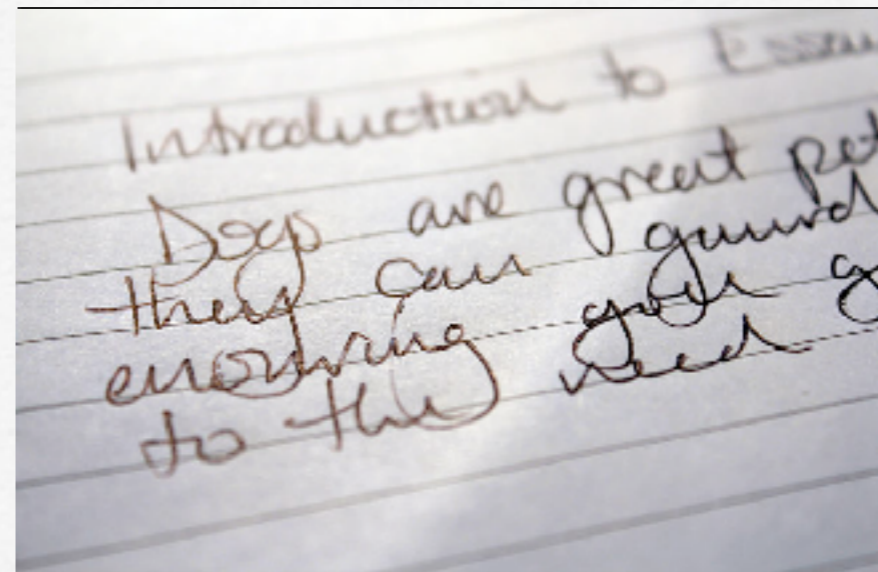 Introduction to Essay
Dogs are great pet
they can guard
you g
to the need